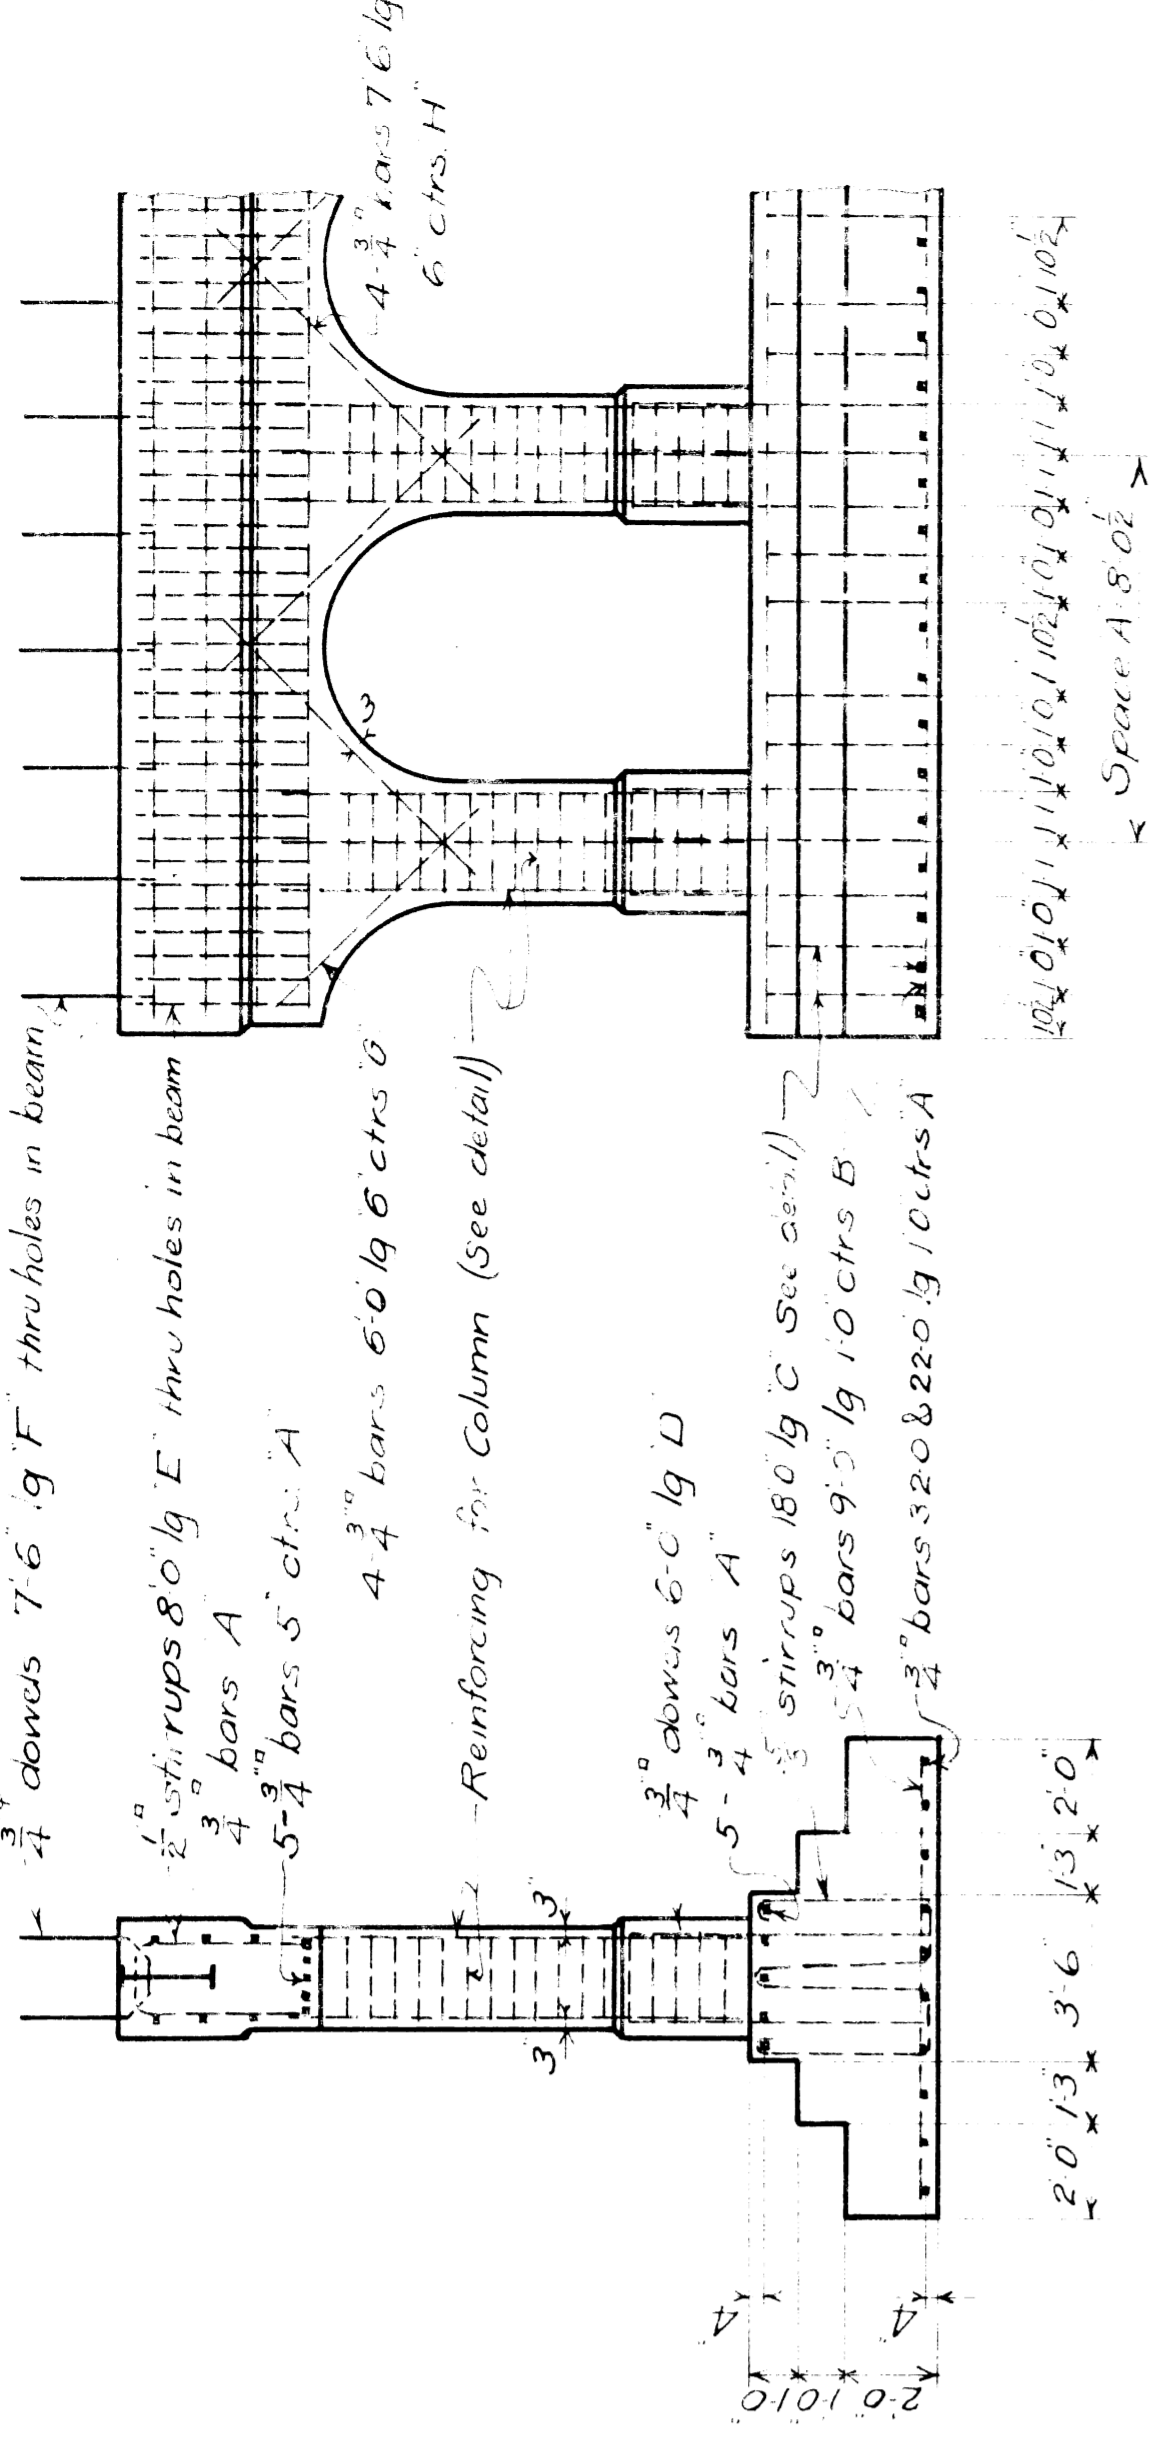 3/4"□ dowels 7'-6" lg "F" thru holes in beam
1/2"□ stirrups 8'0" lg "E" thru holes in beam
3/4"□ bars A
5-3/4"□ bars 5" ctrs "A"
4-3/4"□ bars 6'-0" lg 6" ctrs "G"
Reinforcing for Column (See detail)
3/4"□ dowels 6'-0" lg "D"
5-3/4"□ bars "A"
stirrups 18'0" lg "C" See detail)
3/4"□ bars 9'-0" lg 1'-0" ctrs B
3/4"□ bars 32'-0 & 22'-0" lg 10" ctrs "A"
4-3/4"□ bars 7'6" lg
6" ctrs. "H"
3
3"
3"
4"
4"
1'-0" 1'-0" 2'-0"
2'-0" 1'-3" 3'-6" 1'-3" 2'-0"
Space A 8'-0 1/2"